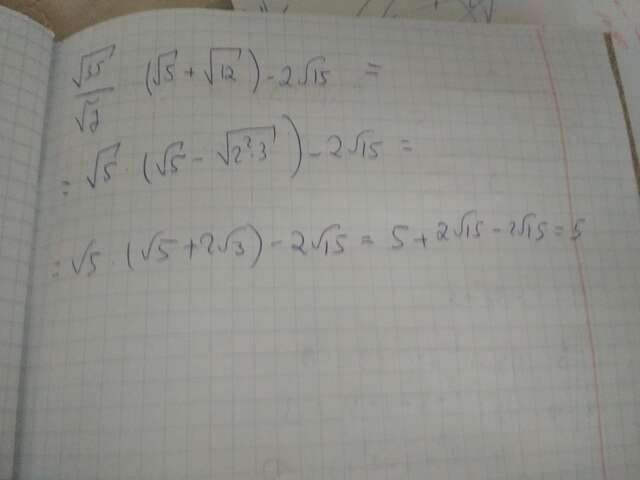 √35/√7 (√5 + √12) - 2√15 =
= √5 · (√5 - √2²·3) - 2√15 =
= √5 · (√5 + 2√3) - 2√15 = 5 + 2√15 - 2√15 = 5